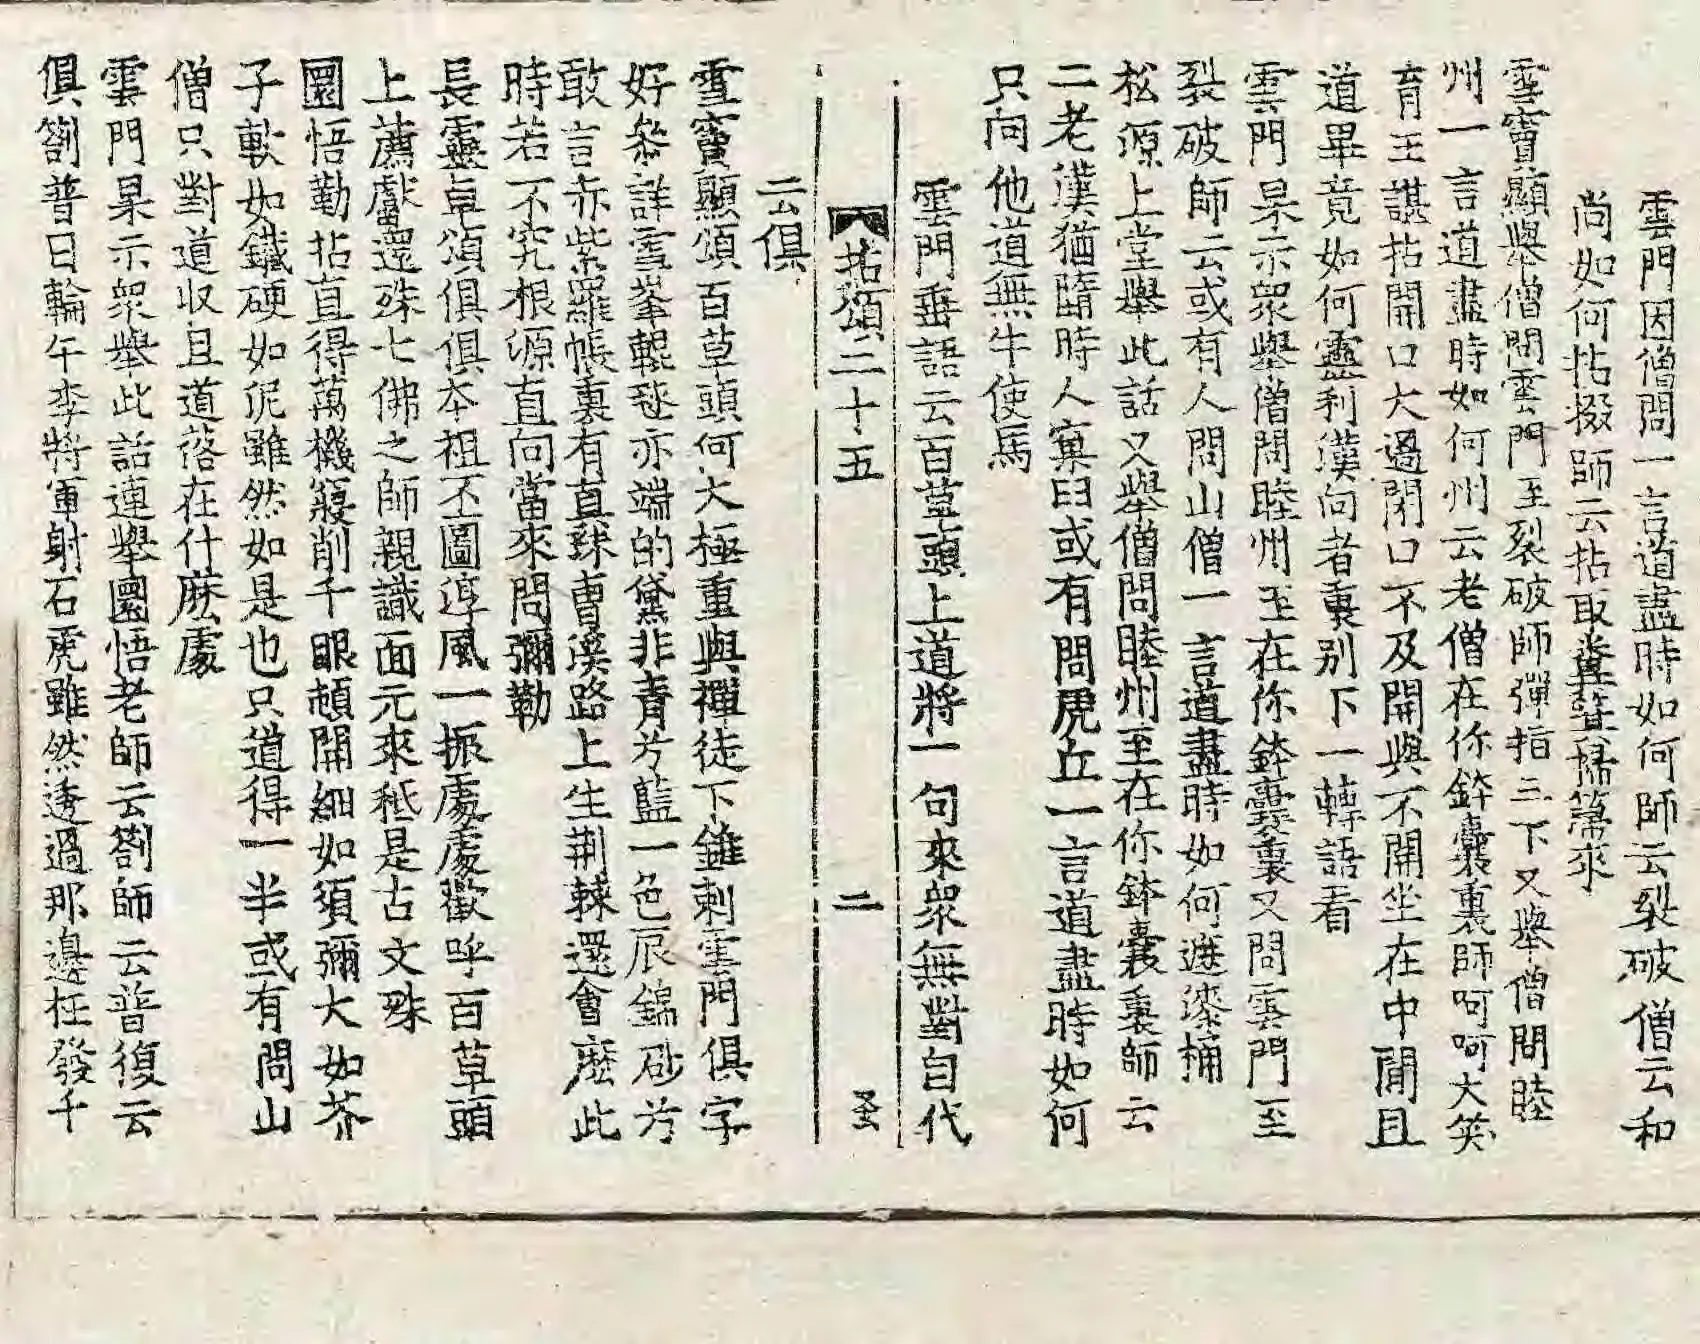 雲門因僧問一言道盡時如何師云裂破僧云和
尚如何拈掇師云拈取糞箕掃箒來
雪竇顯舉僧問雲門至裂破師彈指三下又舉僧問睦
州一言道盡時如何州云老僧在你鉢囊裏師呵呵大笑
育王諶拈開口大過閉口不及開與不開坐在中間且
道畢竟如何靈利漢向者裏別下一轉語看
雲門杲示眾舉僧問睦州至在你鉢囊裏又問雲門至
裂破師云或有人問山僧一言道盡時如何遮漆桶
松源上堂舉此話又舉僧問睦州至在你鉢囊裏師云
二老漢猶墮時人窠臼或有問虎丘一言道盡時如何
只向他道無牛使馬
雲門垂語云百草頭上道將一句來眾無對自代
拈頌二十五 二
云俱
雪竇顯頌百草頭何大極重與禪徒下錐刺雲門俱字
好參詳雪峯輥毬亦端的黛非青兮藍一色辰錦砂兮
敢言赤紫羅帳裏有真珠曹溪路上生荆棘還會麽此
時若不究根源直向當來問彌勒
長靈卓頌俱俱本祖丕圖淳風一振處處歡呼百草頭
上薦獻還殊七佛之師親識面元來秪是古文殊
圜悟勤拈直得萬機寢削千眼頓開細如須彌大如芥
子軟如鐵硬如泥雖然如是也只道得一半或有問山
僧只對道收且道落在什麽處
雲門杲示眾舉此話連舉圜悟老師云劄師云普復云
俱劄普日輪午李將軍射石虎雖然透過那邊枉發千